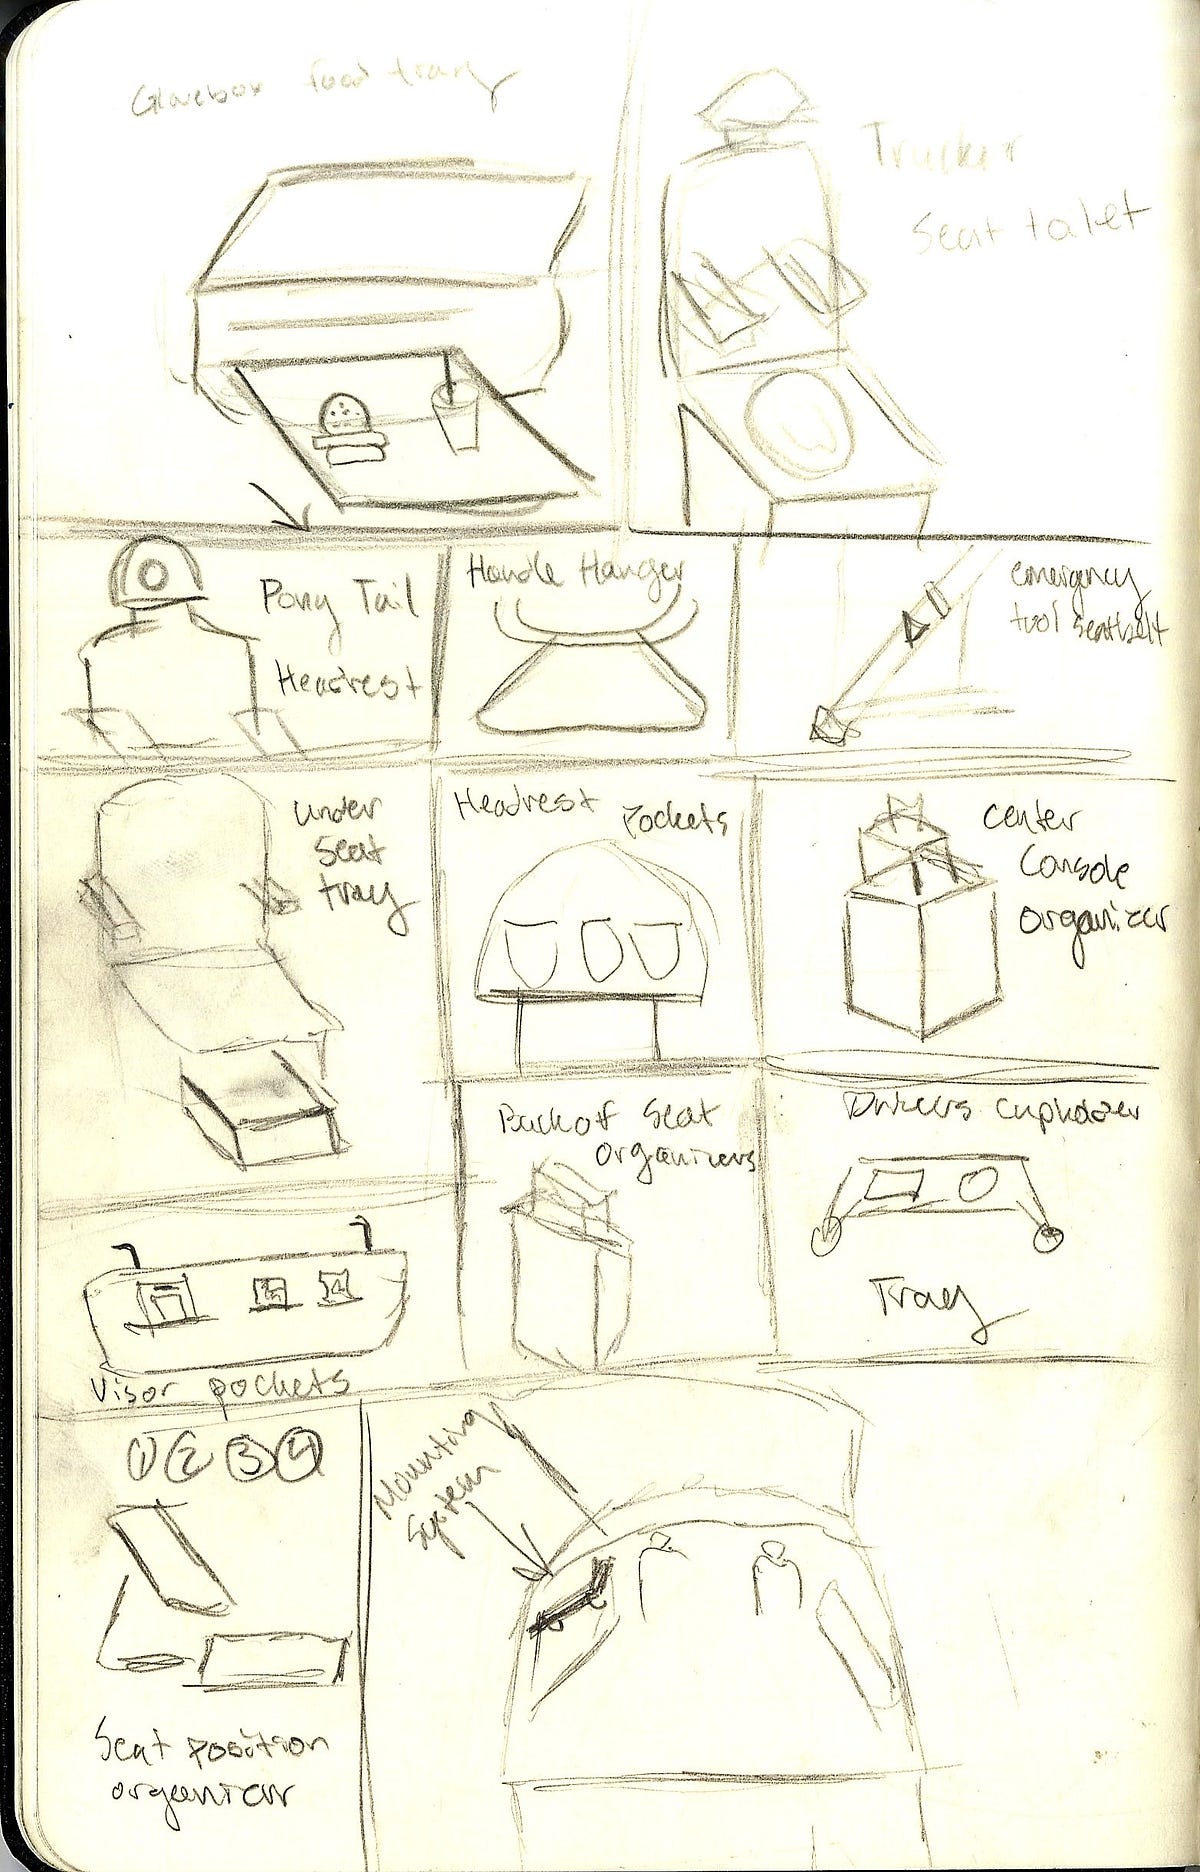 Glovebox food tray
Trucker
Seat toilet
Pony Tail
Headrest
Handle Hanger
emergency
tool seatbelt
under
seat
tray
Headrest Pockets
center
Console
organizer
Back of Seat
organizers
Drivers cupholder
Tray
Visor pockets
1 2 3 4
Mounting
System
Seat position
organizer